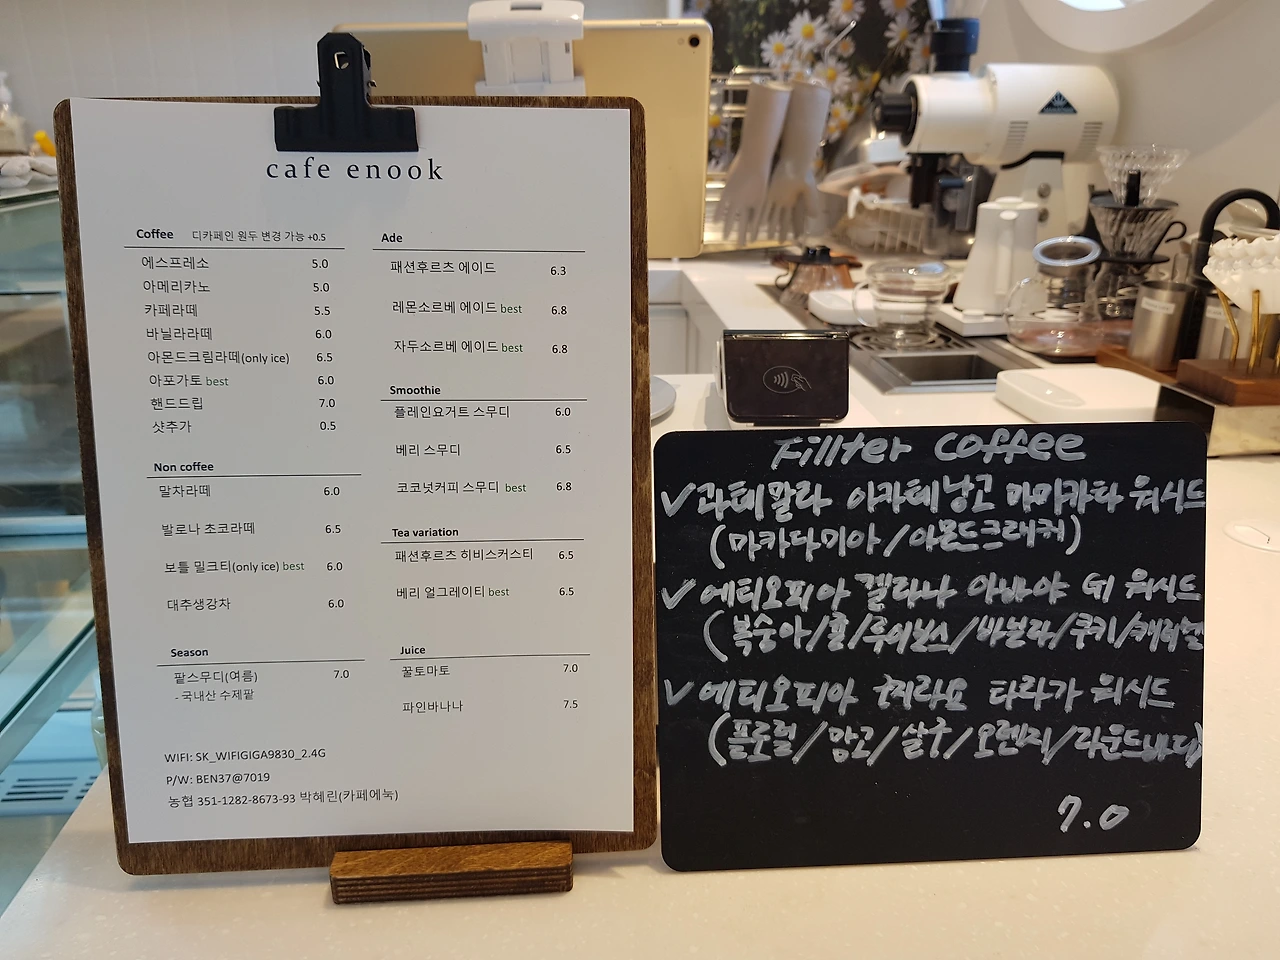 cafe enook
Coffee 디카페인 원두 변경 가능 +0.5
에스프레소 5.0
아메리카노 5.0
카페라떼 5.5
바닐라라떼 6.0
아몬드크림라떼(only ice) 6.5
아포가토 best 6.0
핸드드립 7.0
샷추가 0.5
Non coffee
말차라떼 6.0
발로나 초코라떼 6.5
보틀 밀크티(only ice) best 6.0
대추생강차 6.0
Season
팥스무디(여름) 7.0
- 국내산 수제팥
Ade
패션후르츠 에이드 6.3
레몬소르베 에이드 best 6.8
자두소르베 에이드 best 6.8
Smoothie
플레인요거트 스무디 6.0
베리 스무디 6.5
코코넛커피 스무디 best 6.8
Tea variation
패션후르츠 히비스커스티 6.5
베리 얼그레이티 best 6.5
Juice
꿀토마토 7.0
파인바나나 7.5
WIFI: SK_WIFIGIGA9830_2.4G
P/W: BEN37@7019
농협 351-1282-8673-93 박혜린(카페에눅)
Fillter coffee
✓과테말라 아카테낭고 마미카타 워시드
(마카다미아/아몬드크래커)
✓에티오피아 겔라나 아바야 G1 워시드
(복숭아/홉/루이보스/바닐라/쿠키/캐러멜
✓에티오피아 구지라요 타라가 워시드
(플로럴/망고/살구/오렌지/라운드바디)
7.0